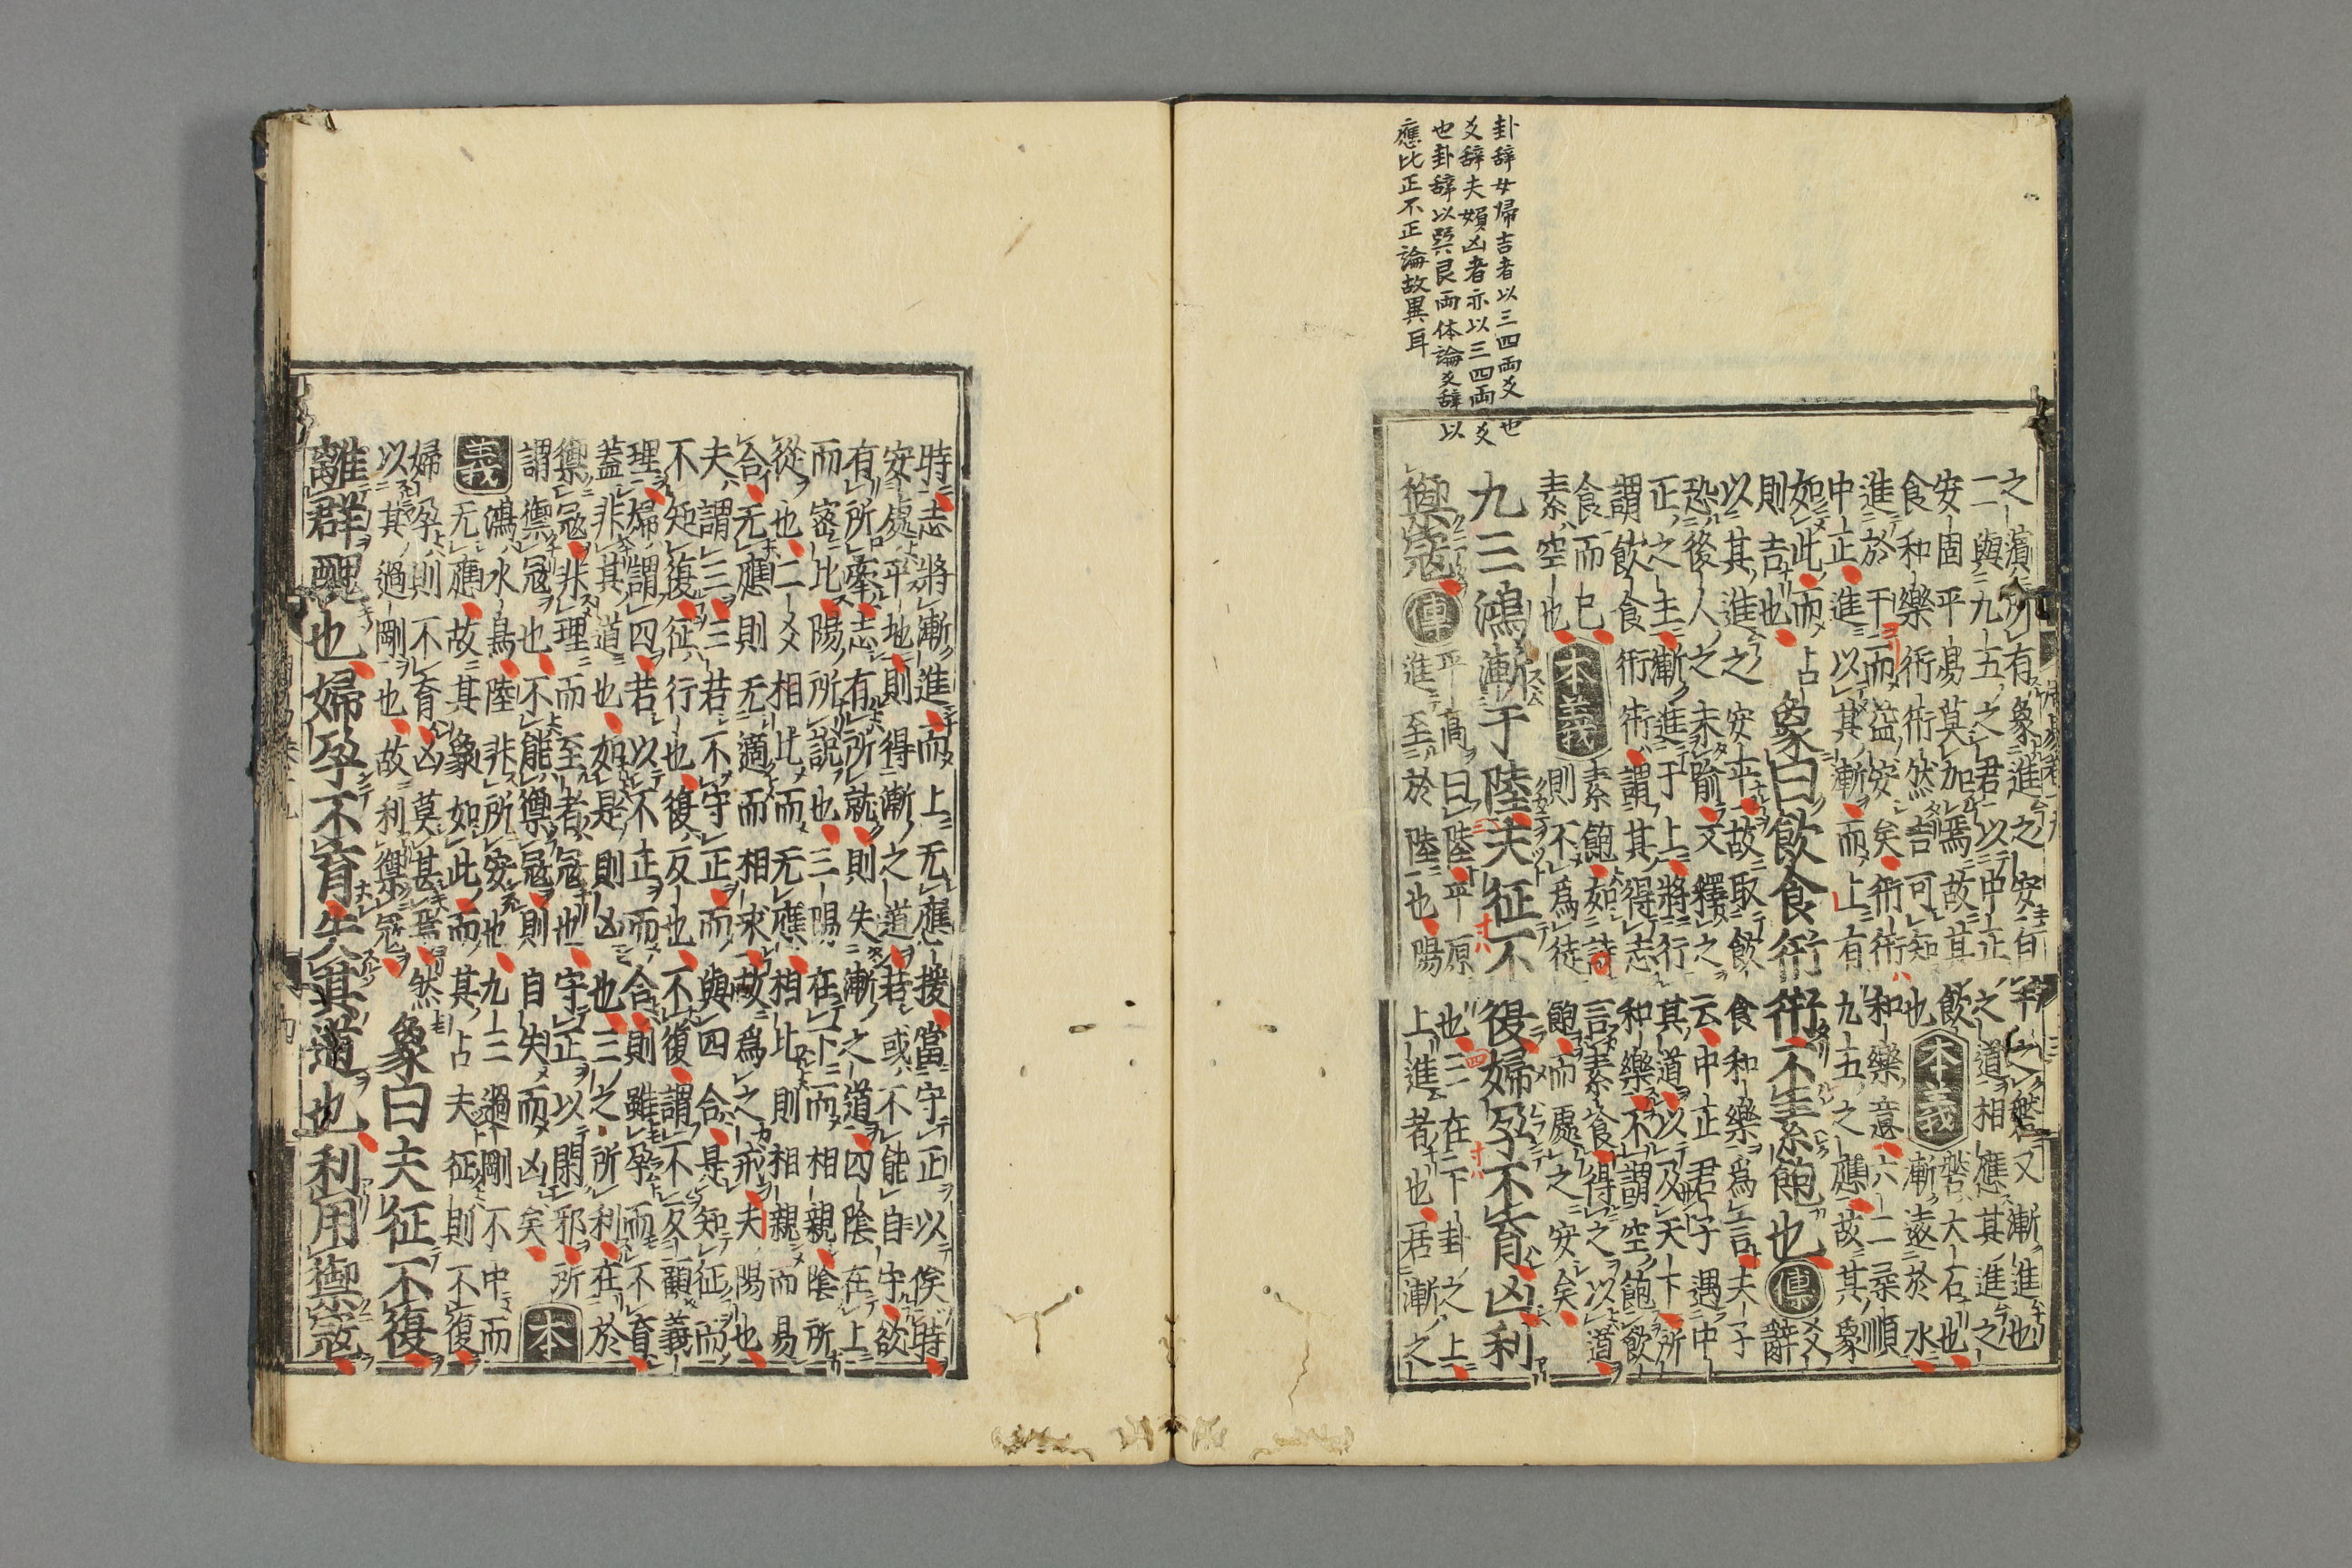 卦辞女帰吉者以三四両爻也
爻辞夫婦凶者亦以三四両爻
也卦辞以巽艮両体論爻辞以
應比正不正論故異耳
之濱所有象進之安自干之磐又漸進也
二與九五之君以中正之道相應其進之
安固平易莫加焉故其飲
食和樂衎衎然吉可知也
本義
磐大石也
漸遠於水
進於干而益安矣衎衎和樂意六二柔順
中正進以其漸而上有九五之應故其象
如此而占
則吉也
象曰飲食衎衎不素飽也
傳
爻辭
以其進之安平故取飲食和樂爲言夫子
恐後人之未喻又釋之云中正君子遇中
正之主漸進于上將行其道以及天下所
謂飲食衎衎謂其得志和樂不謂空飽飲
食而已
素空也
本義
素飽如詩言素餐得之以道
則不爲徒飽而處之安矣
九三鴻漸于陸夫征不復婦孕不育凶利
禦寇
傳
平高曰陸平原也三在下卦之上
進至於陸也陽上進者也居漸之
時志將漸進而上无應援當守正以俟時
安處平地則得漸之道若或不能自守欲
有所牽志有所就則失漸之道四陰在上
而密比陽所説也三陽在下而相親陰所
從也二爻相比而无應相比則相親而易
合无應則无適而相求故爲之戒夫陽也
夫謂三三若不守正而與四合是知征而
不知復征行也復反也不復謂不反顧義
理婦謂四若以不正而合則雖孕而不育
蓋非其道也如是則凶也三之所利在於
禦寇非理而至者寇也守正以閑邪所
謂禦寇也不能禦寇則自失而凶矣
本
義
鴻水鳥陸非所安也九三過剛不中而
无應故其象如此而其占夫征則不復
婦孕則不育凶莫甚焉然
以其過剛也故利禦寇
象曰夫征不復
離群醜也婦孕不育失其道也利用禦寇